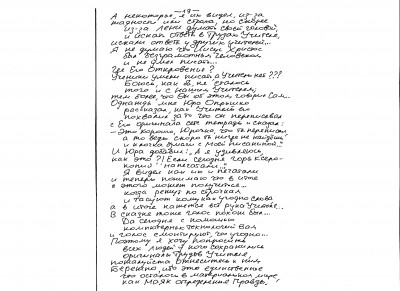 — 19 —
А некоторые, я их видел, из-за
жадности или страха, но скорее
из-за лени думать своей головой,
и искать ответ в Трудах Учителя,
искали ответы у других учителей...
Я не думаю что Иисус Христос
был безграмотным человеком
и не умел писать...
Где Его Откровение?
Ученики умели писать а Учитель нет???
Боюсь, как бы не сталось
того и с Нашим Учителем,
тем более, что Он об этом говорил Сам.
Однажды мне Юра
рассказал, как Учитель его
похвалил за то что он переписывал
с Его оригинала себе тетрадь и сказал:
— Это хорошо, Юрочка, что ты переписал,
а то ведь скоро ты нигде не найдёшь
и клочка бумаги с Моей писаниной."
И Юра добавил: "А я удивлялся,
как это?! Если сегодня горы ксеро-
копий напечатали..."
Я видел как их и печатали
и теперь понимаю что в итоге
с этого может получиться...
когда режут по строчкам
и тасуют кому как угодно слова
а в итоге кажется вы рука Учителя...
В сказке тоже голос похож был...
Да сегодня с помощью
компьютерных технологий Вам
и голос смонтируют, что угодно...
Поэтому я хочу попросить
всех людей у кого сохранились
оригиналы Трудов Учителя,
пожалуйста отнеситесь к ним
Бережно, ибо это единственное
что осталось в материальном мире
как МАЯК определения Правды,